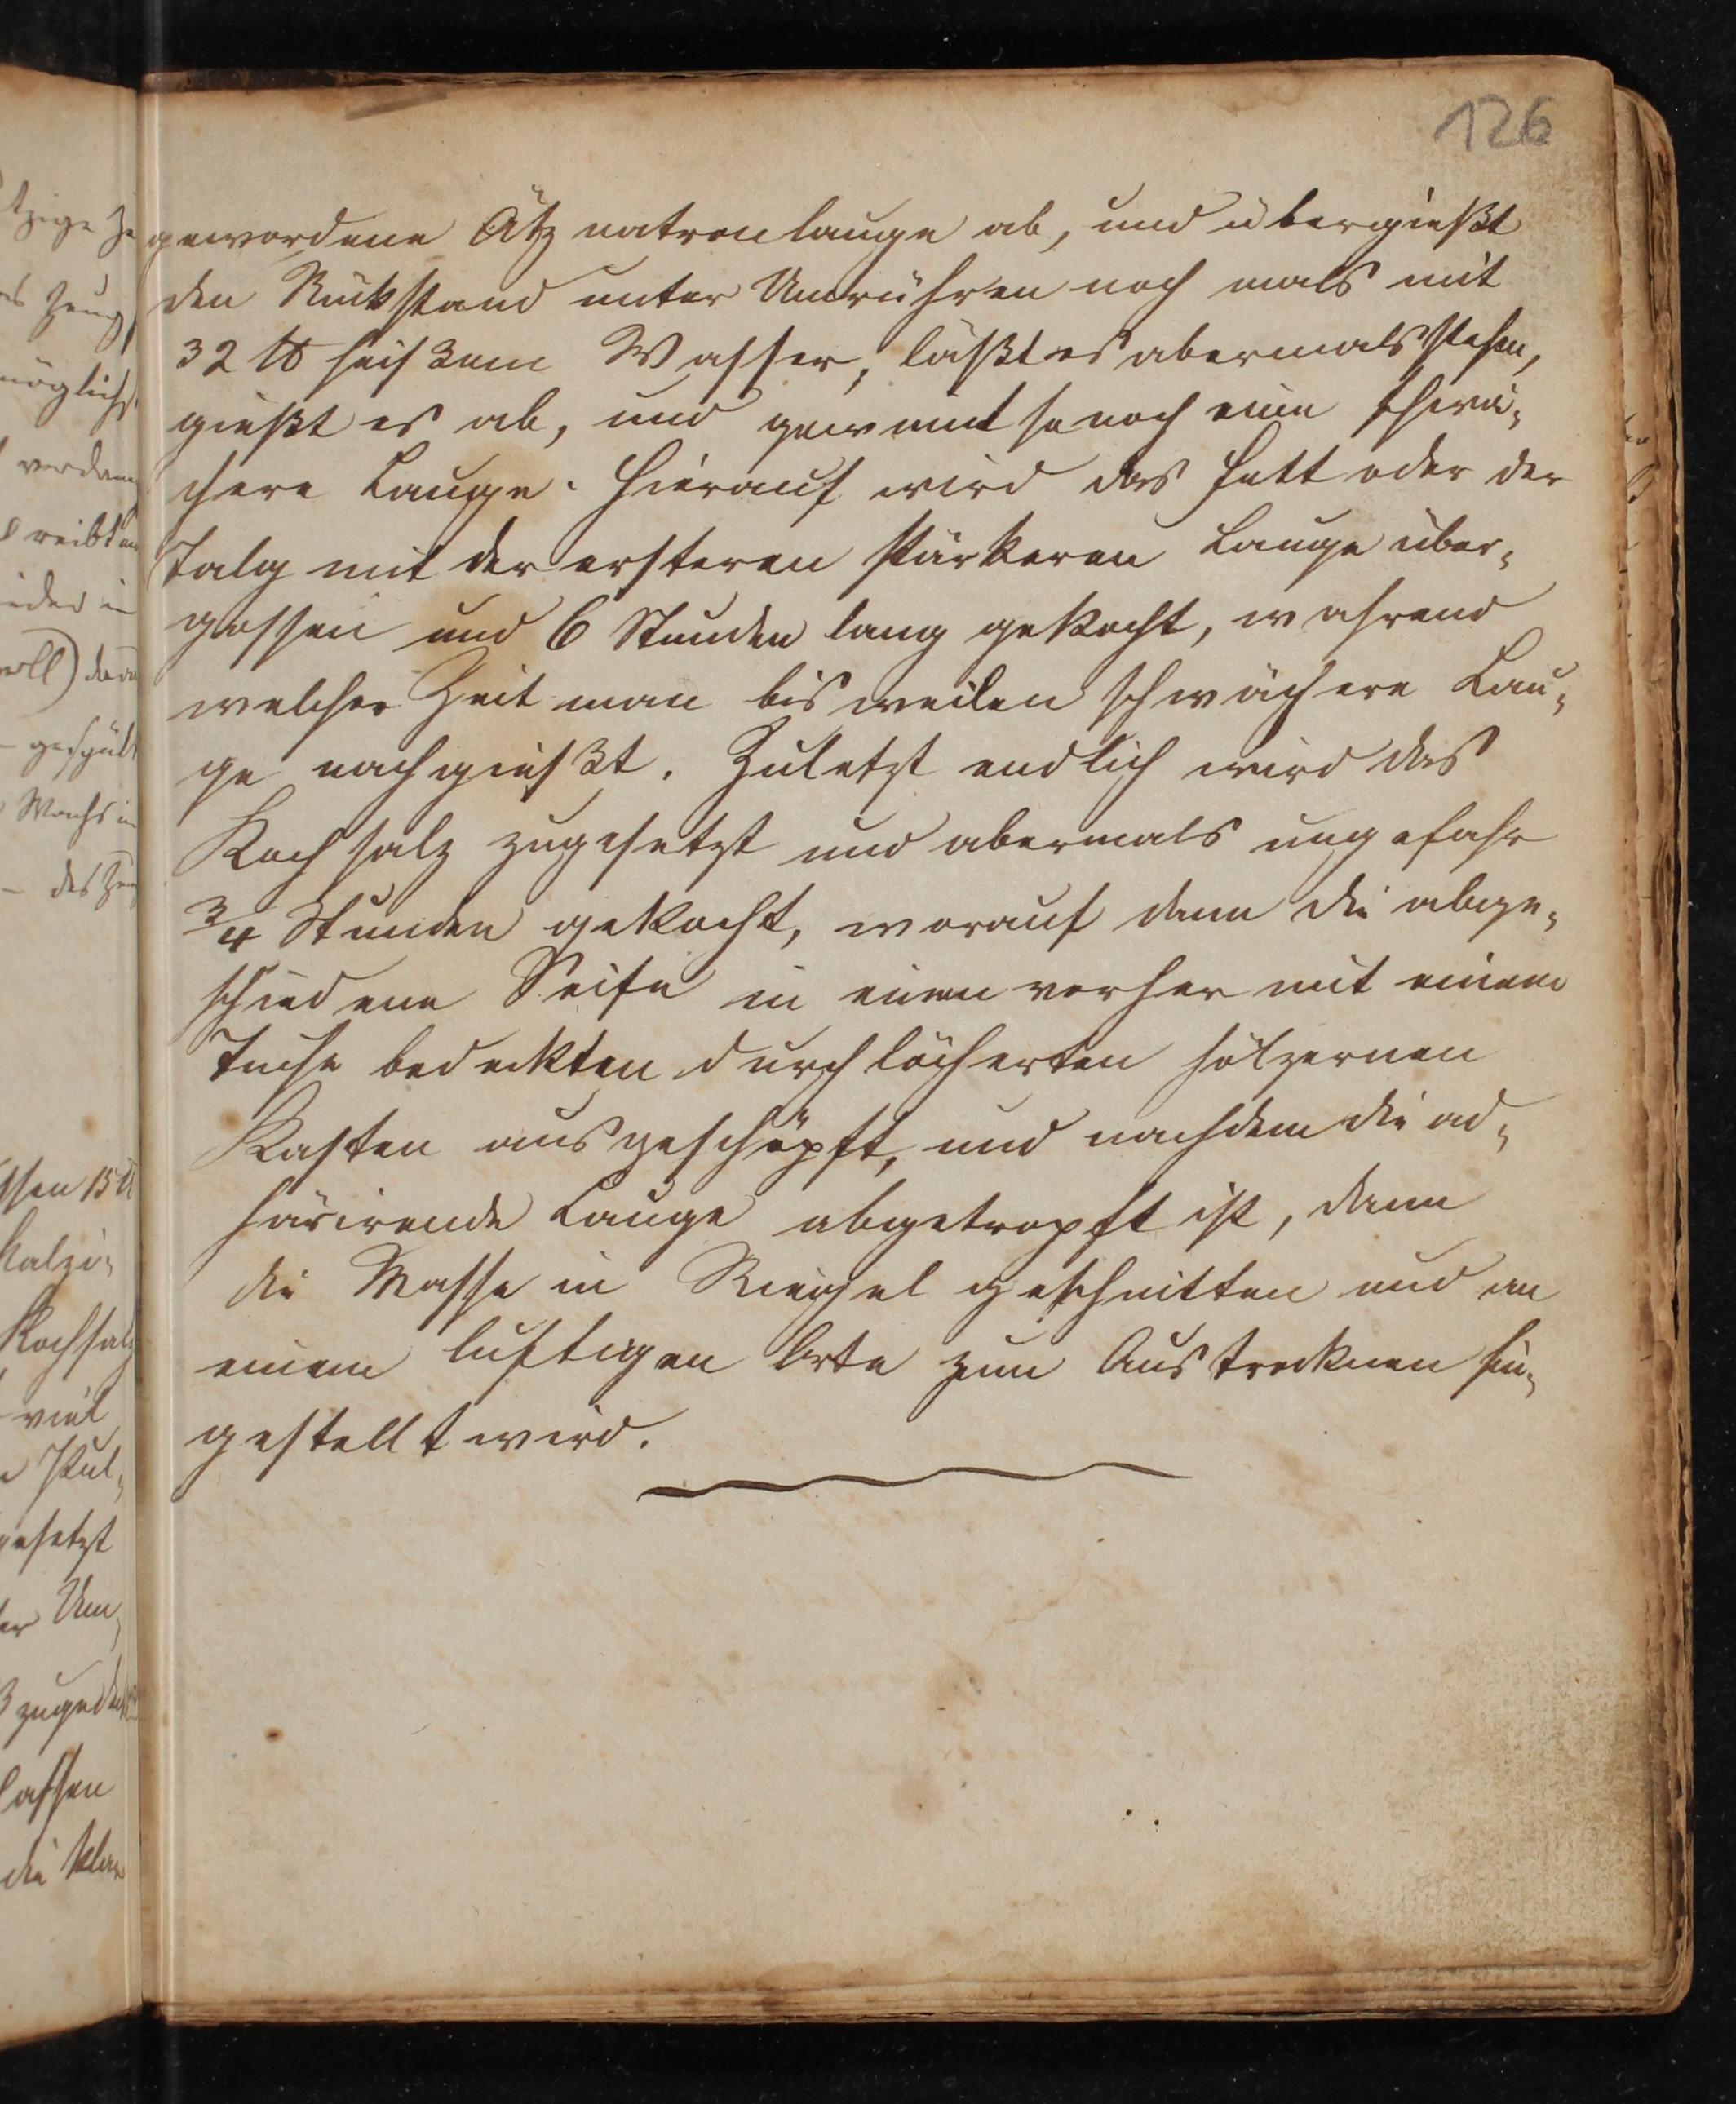 126
gewordene Ätz natronlauge ab, und übergießt
den Rückstand unter Umrühren noch mals mit
32 ℔ heißem Wasser, läßt es abermals stehen,
gießt es ab, und gewinnt so noch eine schwä-
chere Lauge. Hierauf wird das Fett oder der
Talg mit der ersteren stärkeren Lauge über-
gossen und 6 Stunden lang gekocht, wahrend
welcher Zeit man bisweilen schwächere Lau-
ge nachgießt. Zuletzt endlich wird das
Kochsalz zugesetzt und abermals ungefahr
3/4 Stunden gekocht, worauf dann die abge-
schiedene Seife in einen vorher mit einem
Tuche bedeckten durchlöcherten hölzernen
Kasten ausgeschöpft, und nachdem die ad-
härirende Lauge abgetropft ist, dann
die Masse in Riegel geschnitten und an
einem luftigen Orte zum Austrocknen hin-
gestellt wird.